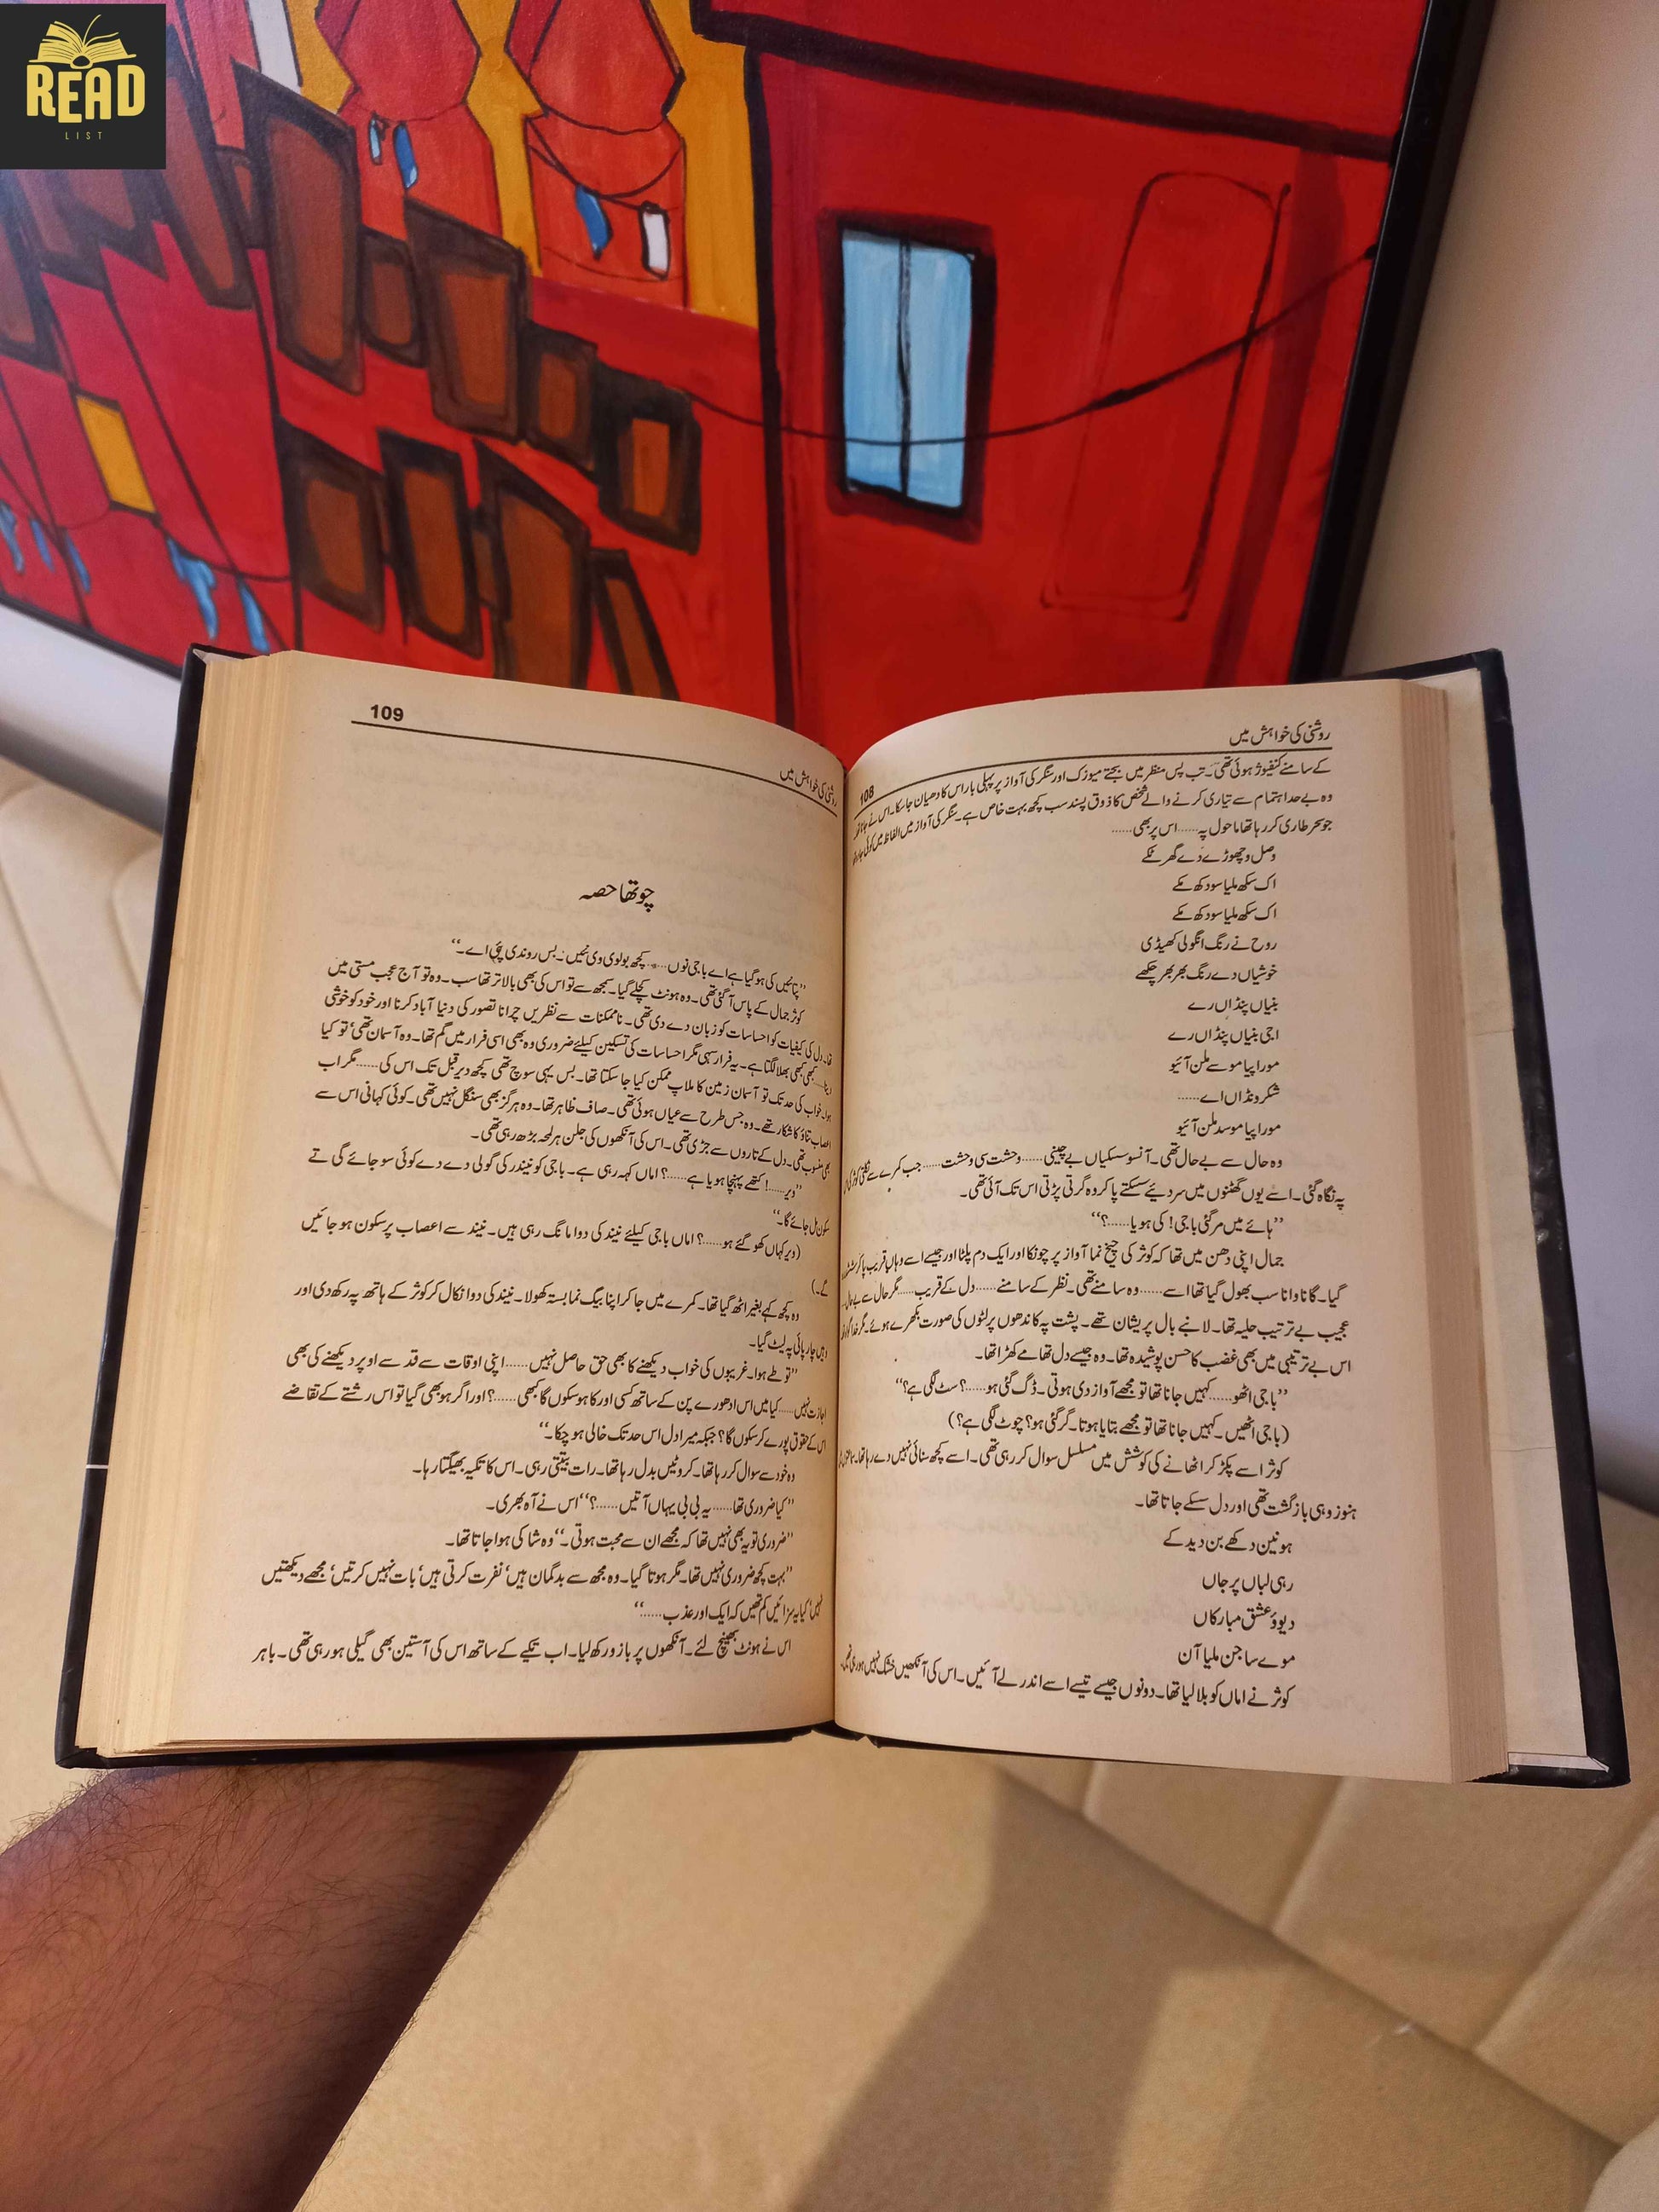 READ
LIST
روشنی کی خواہش میں
108
کے سامنے کنفیوژ ہوئی تھی۔ تب پس منظر میں بجتے میوزک اور سنگر کی آواز پر پہلی بار اس کا دھیان جا سکا۔ اس نے جانا تھا
وہ بے حد اہتمام سے تیاری کرنے والے شخص کا ذوق پسند سب کچھ بہت خاص ہے۔ سنگر کی آواز میں الفاظ میں کوئی جادو تھا
جو سحر طاری کر رہا تھا ماحول پہ...... اس پر بھی......
وصل وچھوڑے دے گھر ٹکے
اک سکھ ملیا سو دکھ مکے
اک سکھ ملیا سو دکھ مکے
روح نے رنگ انگولی کھیڈی
خوشیاں دے رنگ بھر بھر چکھے
بنیاں پنڈاں رے
اجی بنیاں پنڈاں رے
مورا پیا موسے ملن آئیو
شکر ونڈاں اے......
مورا پیا موسہ ملن آئیو
وہ حال سے بے حال تھی۔ آنسو سسکیاں بے چینی...... وحشت سی وحشت...... جب کمرے سے نکلتی کوثر کی اس
پہ نگاہ گئی۔ اسے یوں گھٹنوں میں سر دیئے سسکتے پا کر وہ گرتی پڑتی اس تک آئی تھی۔
”ہائے میں مر گئی باجی! کی ہویا......؟“
جمال اپنی دھن میں تھا کہ کوثر کی چیخ نما آواز پر چونکا اور ایک دم پلٹا اور جیسے اسے وہاں قریب پا کر ششدر رہ
گیا۔ گانا وانا سب بھول گیا تھا اسے...... وہ سامنے تھی۔ نظر کے سامنے...... دل کے قریب...... مگر حال سے بے حال۔
عجیب بے ترتیب حلیہ تھا۔ لانبے بال پریشان تھے۔ پشت پہ کاندھوں پر لٹوں کی صورت بکھرے ہوئے۔ مگر خدا گواہ تھا
اس بے ترتیبی میں بھی غضب کا حسن پوشیدہ تھا۔ وہ جیسے دل تھامے کھڑا تھا۔
”باجی اٹھو...... کہیں جانا تھا تو مجھے آواز دی ہوتی۔ ڈگ گئی ہو......؟ سٹ لگی ہے؟“
(باجی اٹھیں۔ کہیں جانا تھا تو مجھے بتایا ہوتا۔ گر گئی ہو؟ چوٹ لگی ہے؟)
کوثر اسے پکڑ کر اٹھانے کی کوشش میں مسلسل سوال کر رہی تھی۔ اسے کچھ سنائی نہیں دے رہا تھا۔
ہنوز وہی بازگشت تھی اور دل سسکے جاتا تھا۔
ہو نین دکھے بن دید کے
رہی لباں پر جاں
دیوؤ عشق مبارکاں
موے ساجن ملیا آن
کوثر نے اماں کو بلا لیا تھا۔ دونوں جیسے تیسے اسے اندر لے آئیں۔ اس کی آنکھیں خشک نہیں ہو رہی تھیں۔
109
روشنی کی خواہش میں
چوتھا حصہ
”پتا نئیں کی ہو گیا ہے اے باجی نوں...... کچھ بولدی وی نئیں۔ بس روندی پئی اے۔“
کوثر جمال کے پاس آ گئی تھی۔ وہ ہونٹ کچلے گیا۔ سمجھ سے تو اس کی بھی بالاتر تھا سب۔ وہ تو آج عجب مستی میں
تھا۔ دل کی کیفیات کو احساسات کو زبان دے دی تھی۔ ناممکنات سے نظریں چرانا تصور کی دنیا آباد کرنا اور خود کو خوشی
دینا...... کبھی کبھی بھلا لگتا ہے۔ یہ فرار سہی مگر احساسات کی تسکین کیلئے ضروری وہ بھی اسی فرار میں گم تھا۔ وہ آسمان تھی‘ تو کیا
ہوا۔ خواب کی حد تک تو آسمان زمین کا ملاپ ممکن کیا جا سکتا تھا۔ بس یہی سوچ تھی کچھ دیر قبل تک اس کی...... مگر اب
اعصاب تناؤ کا شکار تھے۔ وہ جس طرح سے عیاں ہوئی تھی۔ صاف ظاہر تھا۔ وہ ہرگز بھی سنگل نہیں تھی۔ کوئی کہانی اس سے
بھی منسوب تھی۔ دل کے تاروں سے جڑی تھی۔ اس کی آنکھوں کی جلن ہر لمحہ بڑھ رہی تھی۔
”ویر......! کتھے پہنچا ہویا ہے......؟ اماں کہہ رہی ہے۔ باجی کو نیندر کی گولی دے دے کوئی سو جائے گی تے
سکون مل جائے گا۔“
(ویر کہاں کھو گئے ہو......؟ اماں باجی کیلئے نیند کی دوا مانگ رہی ہیں۔ نیند سے اعصاب پر سکون ہو جائیں
گے۔)
وہ کچھ کہے بغیر اٹھ گیا تھا۔ کمرے میں جا کر اپنا بیگ نما بستہ کھولا۔ نیند کی دوا نکال کر کوثر کے ہاتھ پہ رکھ دی اور
وہیں چارپائی پہ لیٹ گیا۔
”تو طے ہوا۔ غریبوں کی خواب دیکھنے کا بھی حق حاصل نہیں...... اپنی اوقات سے قد سے اوپر دیکھنے کی بھی
اجازت نہیں...... کیا میں اس ادھورے پن کے ساتھ کسی اور کا ہو سکوں گا کبھی......؟ اور اگر ہو بھی گیا تو اس رشتے کے تقاضے
اس کے حقوق پورے کر سکوں گا؟ جبکہ میرا دل اس حد تک خالی ہو چکا۔“
وہ خود سے سوال کر رہا تھا۔ کروٹیں بدل رہا تھا۔ رات بیتتی رہی۔ اس کا تکیہ بھیگتا رہا۔
”کیا ضروری تھا...... یہ بی بی یہاں آتیں......؟“ اس نے آہ بھری۔
”ضروری تو یہ بھی نہیں تھا کہ مجھے ان سے محبت ہوتی۔“ وہ شاکی ہوا جاتا تھا۔
”بہت کچھ ضروری نہیں تھا۔ مگر ہوتا گیا۔ وہ مجھ سے بدگمان ہیں‘ نفرت کرتی ہیں‘ بات نہیں کرتیں‘ مجھے دیکھتیں
نہیں‘ کیا یہ سزائیں کم تھیں کہ ایک اور عذب......“
اس نے ہونٹ بھینچ لئے۔ آنکھوں پر بازو رکھ لیا۔ اب تکیے کے ساتھ اس کی آستین بھی گیلی ہو رہی تھی۔ باہر